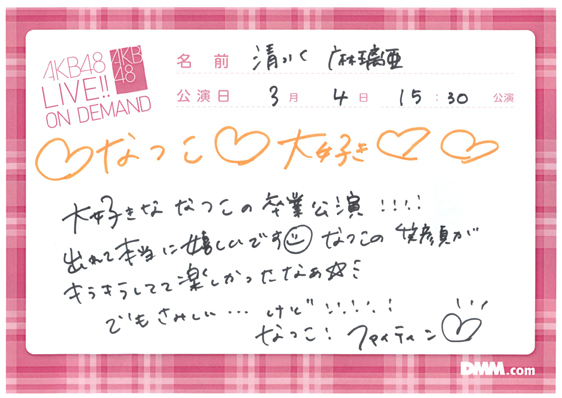 AKB48
LIVE!!
ON DEMAND
AKB
48
名前 清水 麻璃亜
公演日 3月 4日 15:30 公演
♡なつこ♡大好き♡♡
大好きな なつこの 卒業公演!!!!
出れて本当に嬉しいです☺ なつこの 笑顔が
キラキラしてて楽しかったなぁ☆ミ
でもさみしい… けど!!!!!
なつこ! ファイティン♡
DMM.com